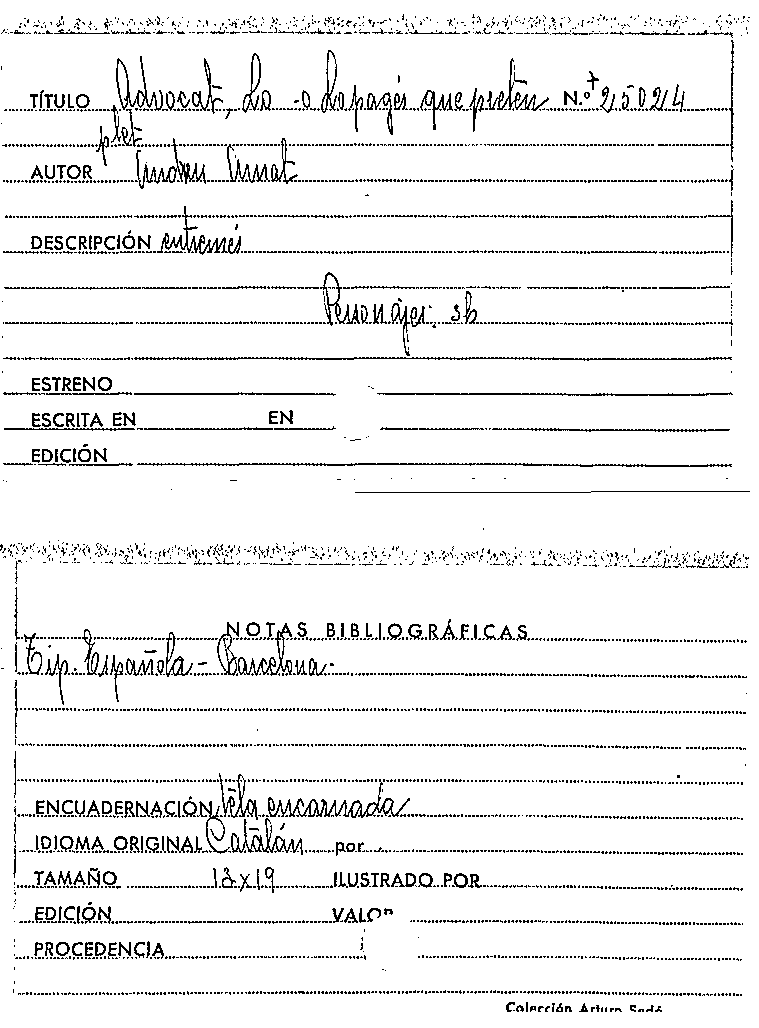 TÍTULO Advocat, Lo -o Lo pagés que pretén N.º + 215024
plet
AUTOR Andreu Amat
DESCRIPCIÓN entremés
Personajes: 3h
ESTRENO
ESCRITA EN EN
EDICIÓN
NOTAS BIBLIOGRÁFICAS
Tip. Española - Barcelona -
ENCUADERNACIÓN tela encarnada
IDIOMA ORIGINAL Catalán por
TAMAÑO 13x19 ILUSTRADO POR
EDICIÓN VALOR
PROCEDENCIA
Colección Arturo Sedó